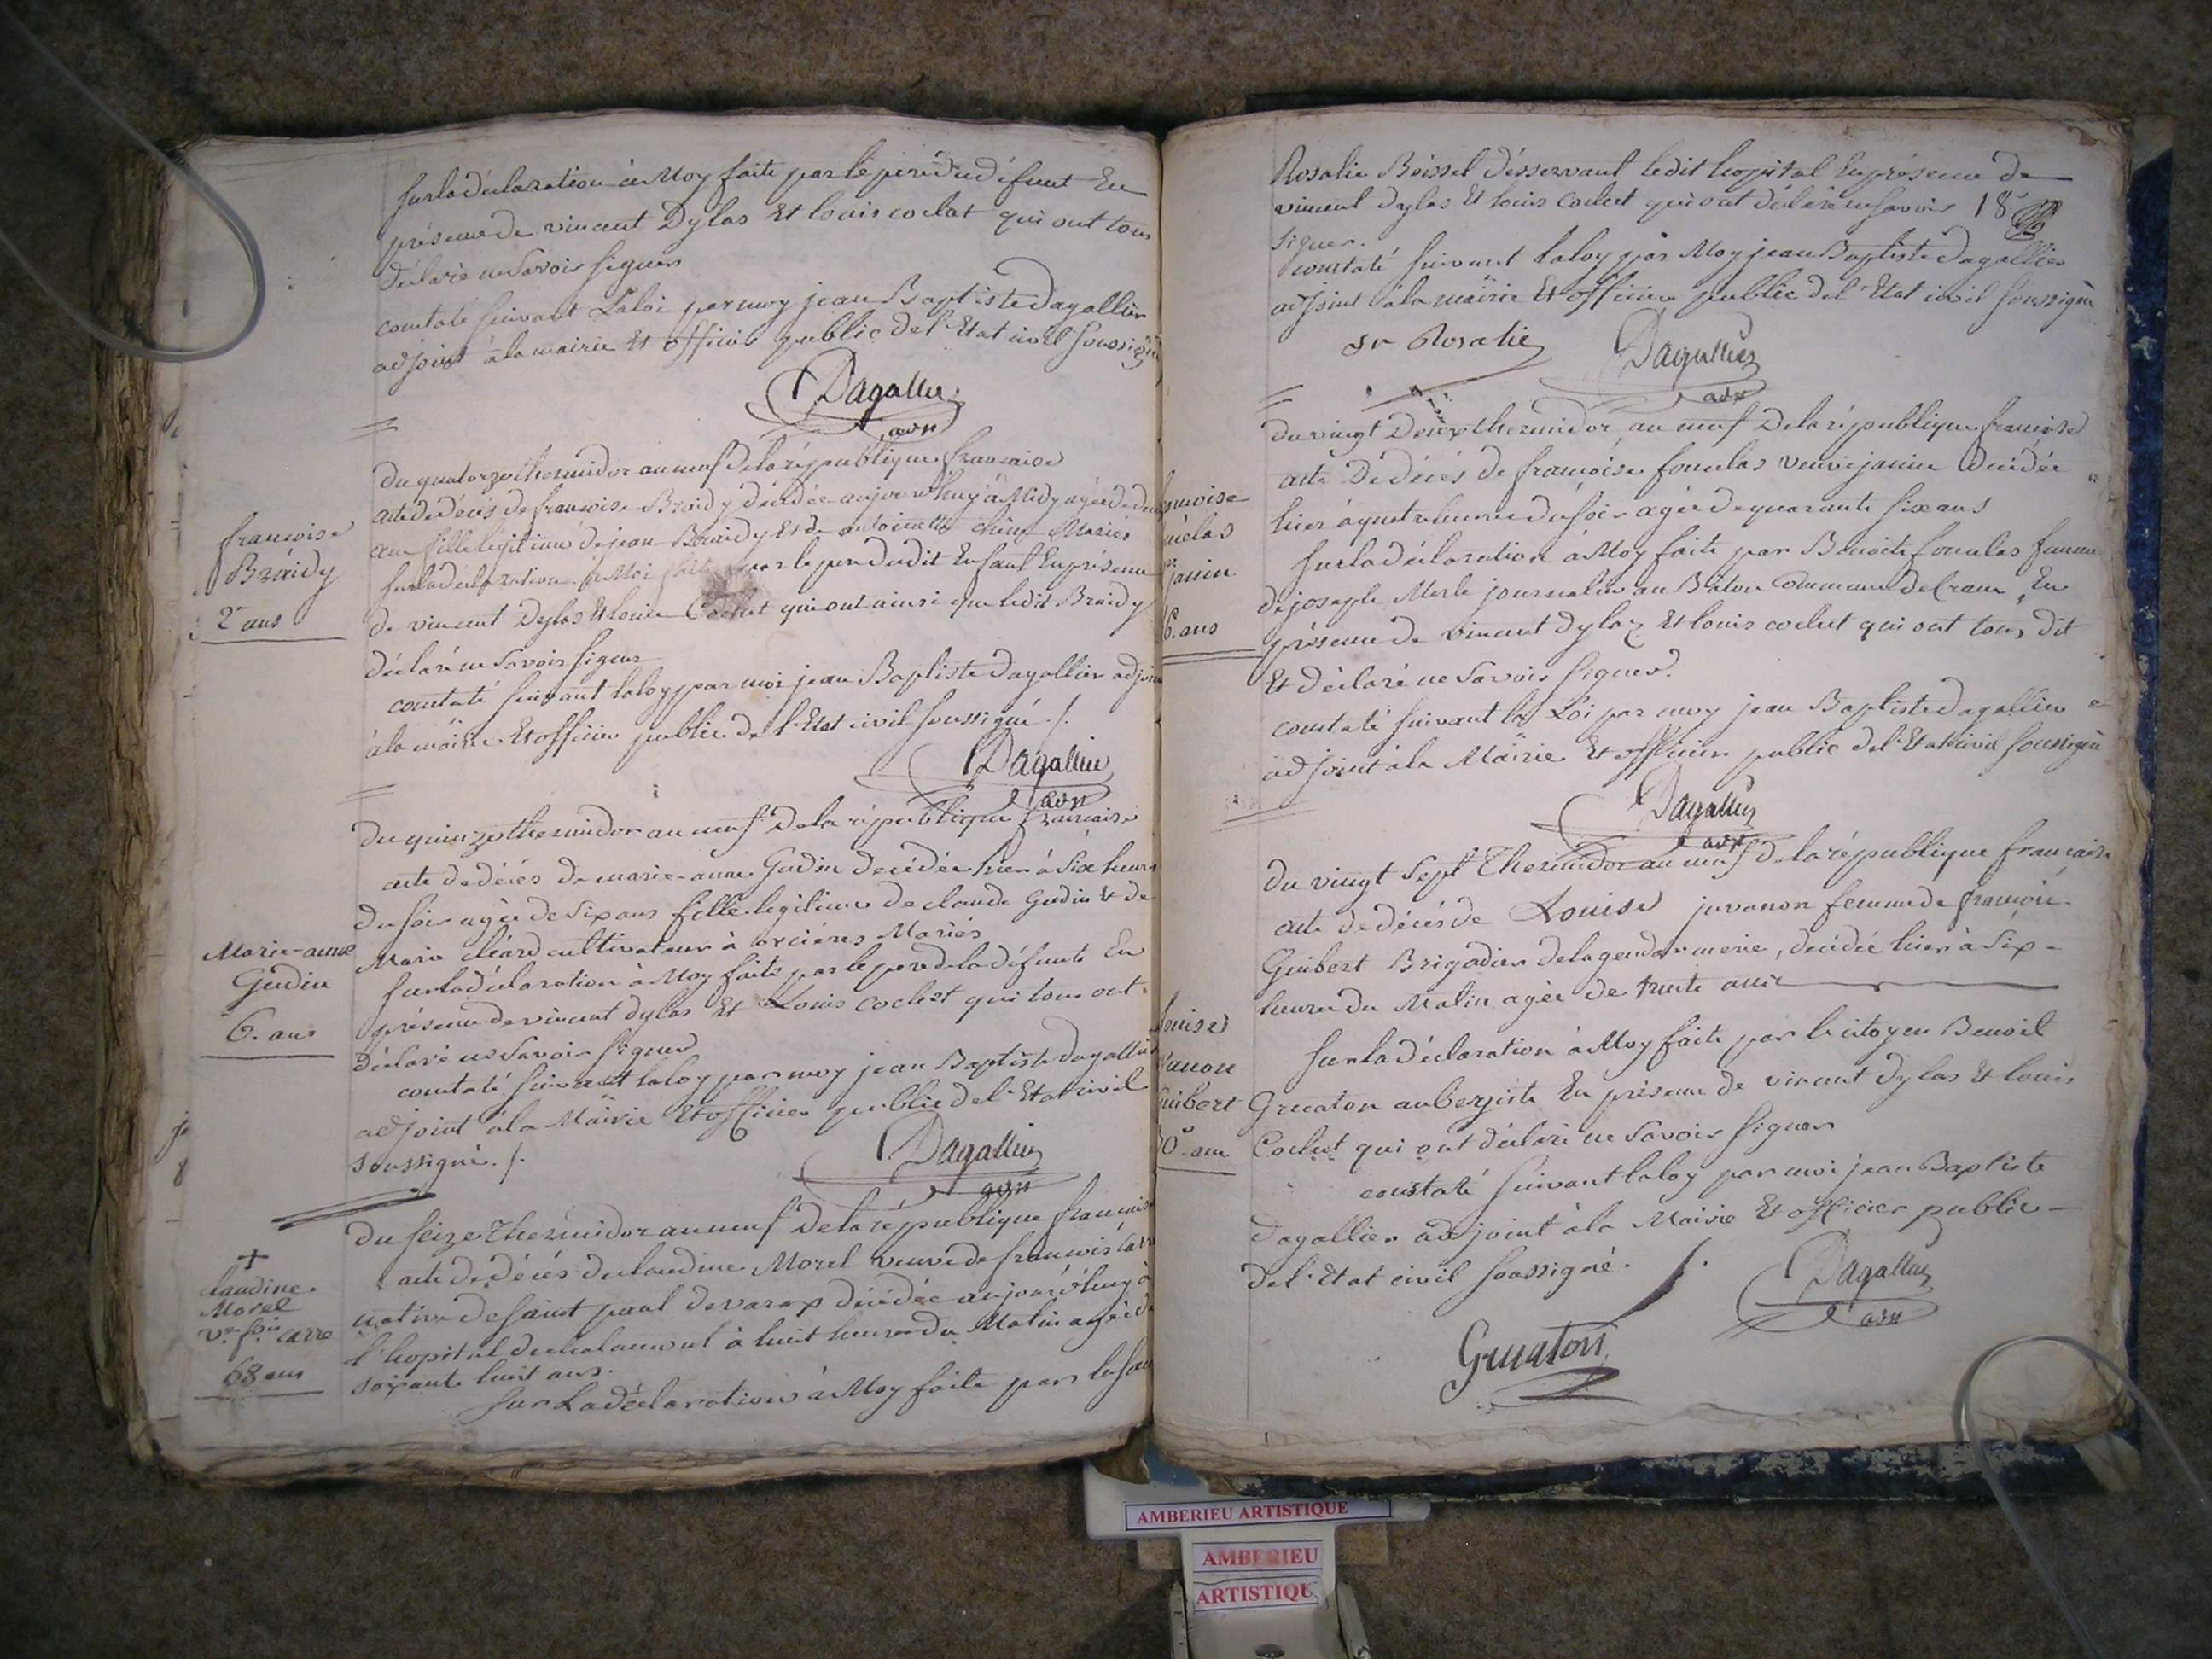 sur la déclaration à Moy faite par le père du défunt En
présence de vincent Dylas Et louis coclet qui ont tous
déclaré ne Savoir signer
constaté suivant La loi par moy jean Baptiste Dagallier
adjoint à la mairie Et officier public de l'Etat civil soussigné
Dagallier
adjt
du quatorze thermidor an neuf de la république francaise
acte de décés de francoise Braidy décédée aujourdhuy à Midy agée de deux
ans fille legitime de jean Braidy Et de antoinette Mariés
sur la déclaration à Moi faite par le père dudit Enfant En présence
de vincent Dylas Et louis Coclet qui ont ainsi que ledit Braidy
déclaré ne Savoir signer
constaté suivant la loy par moi jean Baptiste Dagallier adjoint
à la mairie Et officier public de l'Etat civil soussigné ./.
Dagallier
adjt
francoise
Braidy
2 ans
du quinze thermidor an neuf de la république francaise
acte de décés de marie-anne Gudin decédée hier à Six heures
du soir agée de Six ans fille legitime de claude Gudin & de
Marie cléard cultivateur à orcières Mariés
sur la déclaration à Moy faite par le pere de la défunte En
présence de vincent dylas Et Louis coclet qui tous ont
déclaré ne Savoir signer
constaté suivant la loy par moy jean Baptiste Dagallier
adjoint à la Mairie Et officier public de l'Etat civil
soussigné ./.
Dagallier
adjt
Marie-anne
Gudin
6. ans
du seize Thermidor an neuf De la république francaise
acte de décés de claudine Morel veuve de francois carre
native de saint paul de varax décédée aujourd'huy à
l'hopital de chalamont à huit heures du Matin agée de
soixante huit ans.
sur La déclaration à Moy faite par la
+
laudine
Morel
ve. fois carre
68 ans
Rosalie Boissel désservant ledit hopital En présence de
vincent dylas Et louis coclet qui ont déclaré ne savoir 18
signer.
constaté suivant la loy par Moy jean Baptiste Dagallier
adjoint à la mairie Et officier public de l'Etat civil soussigné
Sr Rosalie
Dagallier
adjt
du vingt Deux thermidor an neuf De la république francaise
acte De décés de francoise veuve janin décédée
hier à quatre heures du soir agée de quarante six ans
sur la déclaration à Moy faite par Benoite femme
de joseph Merle journalier au Bâton Commune de Crans, En
présence de vincent dylas Et louis coclet qui ont tous dit
Et déclaré ne Savoir signer.
constaté suivant la Loi par moy jean Baptiste Dagallier
adjoint à la Mairie Et officier public de l'Etat civil soussigné
Dagallier
adjt
ancoise
janin
6. ans
du vingt Sept Thermidor an neuf de la république francaise
acte de décés de Louise juvanon femme de francois
Guibert Brigadier de la gendarmerie, décédée hier à Six
heures du Matin agée de trente ans
sur la déclaration à Moy faite par le citoyen Benoit
Gruaton aubergiste En présence de vincent dylas Et louis
Coclet qui ont déclaré ne Savoir signer
constaté suivant la loy par moi jean Baptiste
Dagallier adjoint à la Mairie Et officier public
de l'Etat civil soussigné. /.
Dagallier
adjt
Gruaton
Louise
vanon
uibert
30. ans
AMBERIEU ARTISTIQUE
AMBERIEU
ARTISTIQU